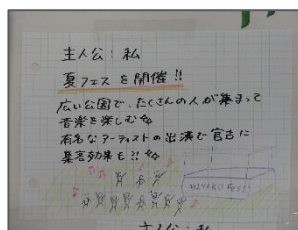 主人公：私
夏フェスを開催!!
広い公園で、たくさんの人が集まって
音楽を楽しむ☆
有名なアーティストの出演で宮古に
集客効果も?! ☆
MIYAKO FES!!
主人公：私